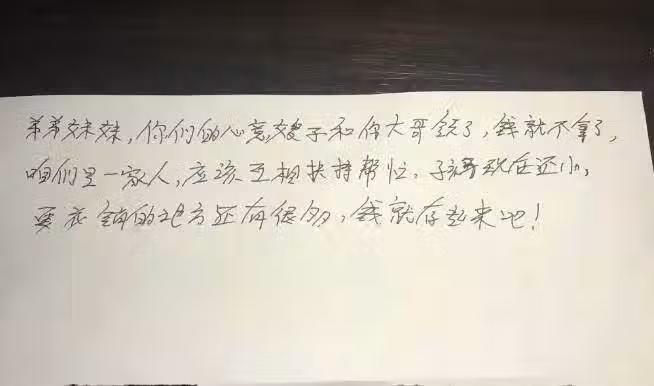 弟弟妹妹,你们的心意,嫂子和你大哥领了,钱就不拿了,
咱们是一家人,应该互相扶持帮忙,子现在还小,
要花销的地方还有很多,钱就存起来吧!